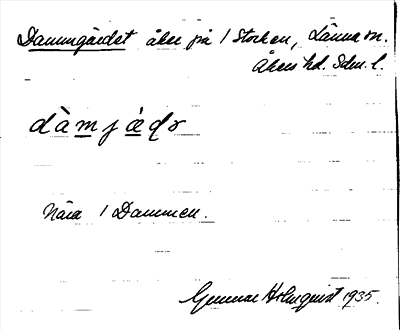 Dammgärdet åker på 1 Stocken, Länna sn.
Åkers hd. Sdm. l.
dàmjæ̀ḍɤ
Nära 1 Dammen.
Gunnar Holmquist 1935.